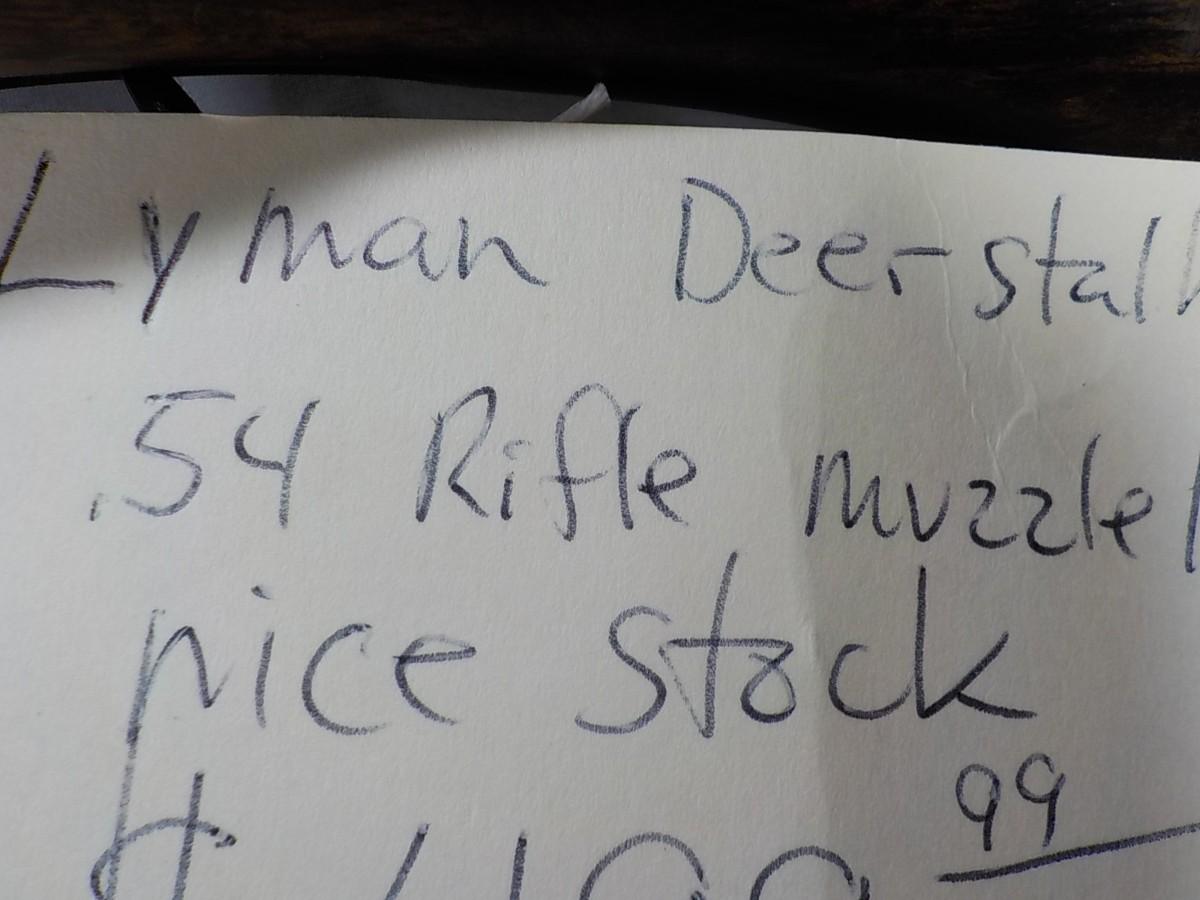 Lyman Deerstal
.54 Rifle muzzlel
nice stock
99